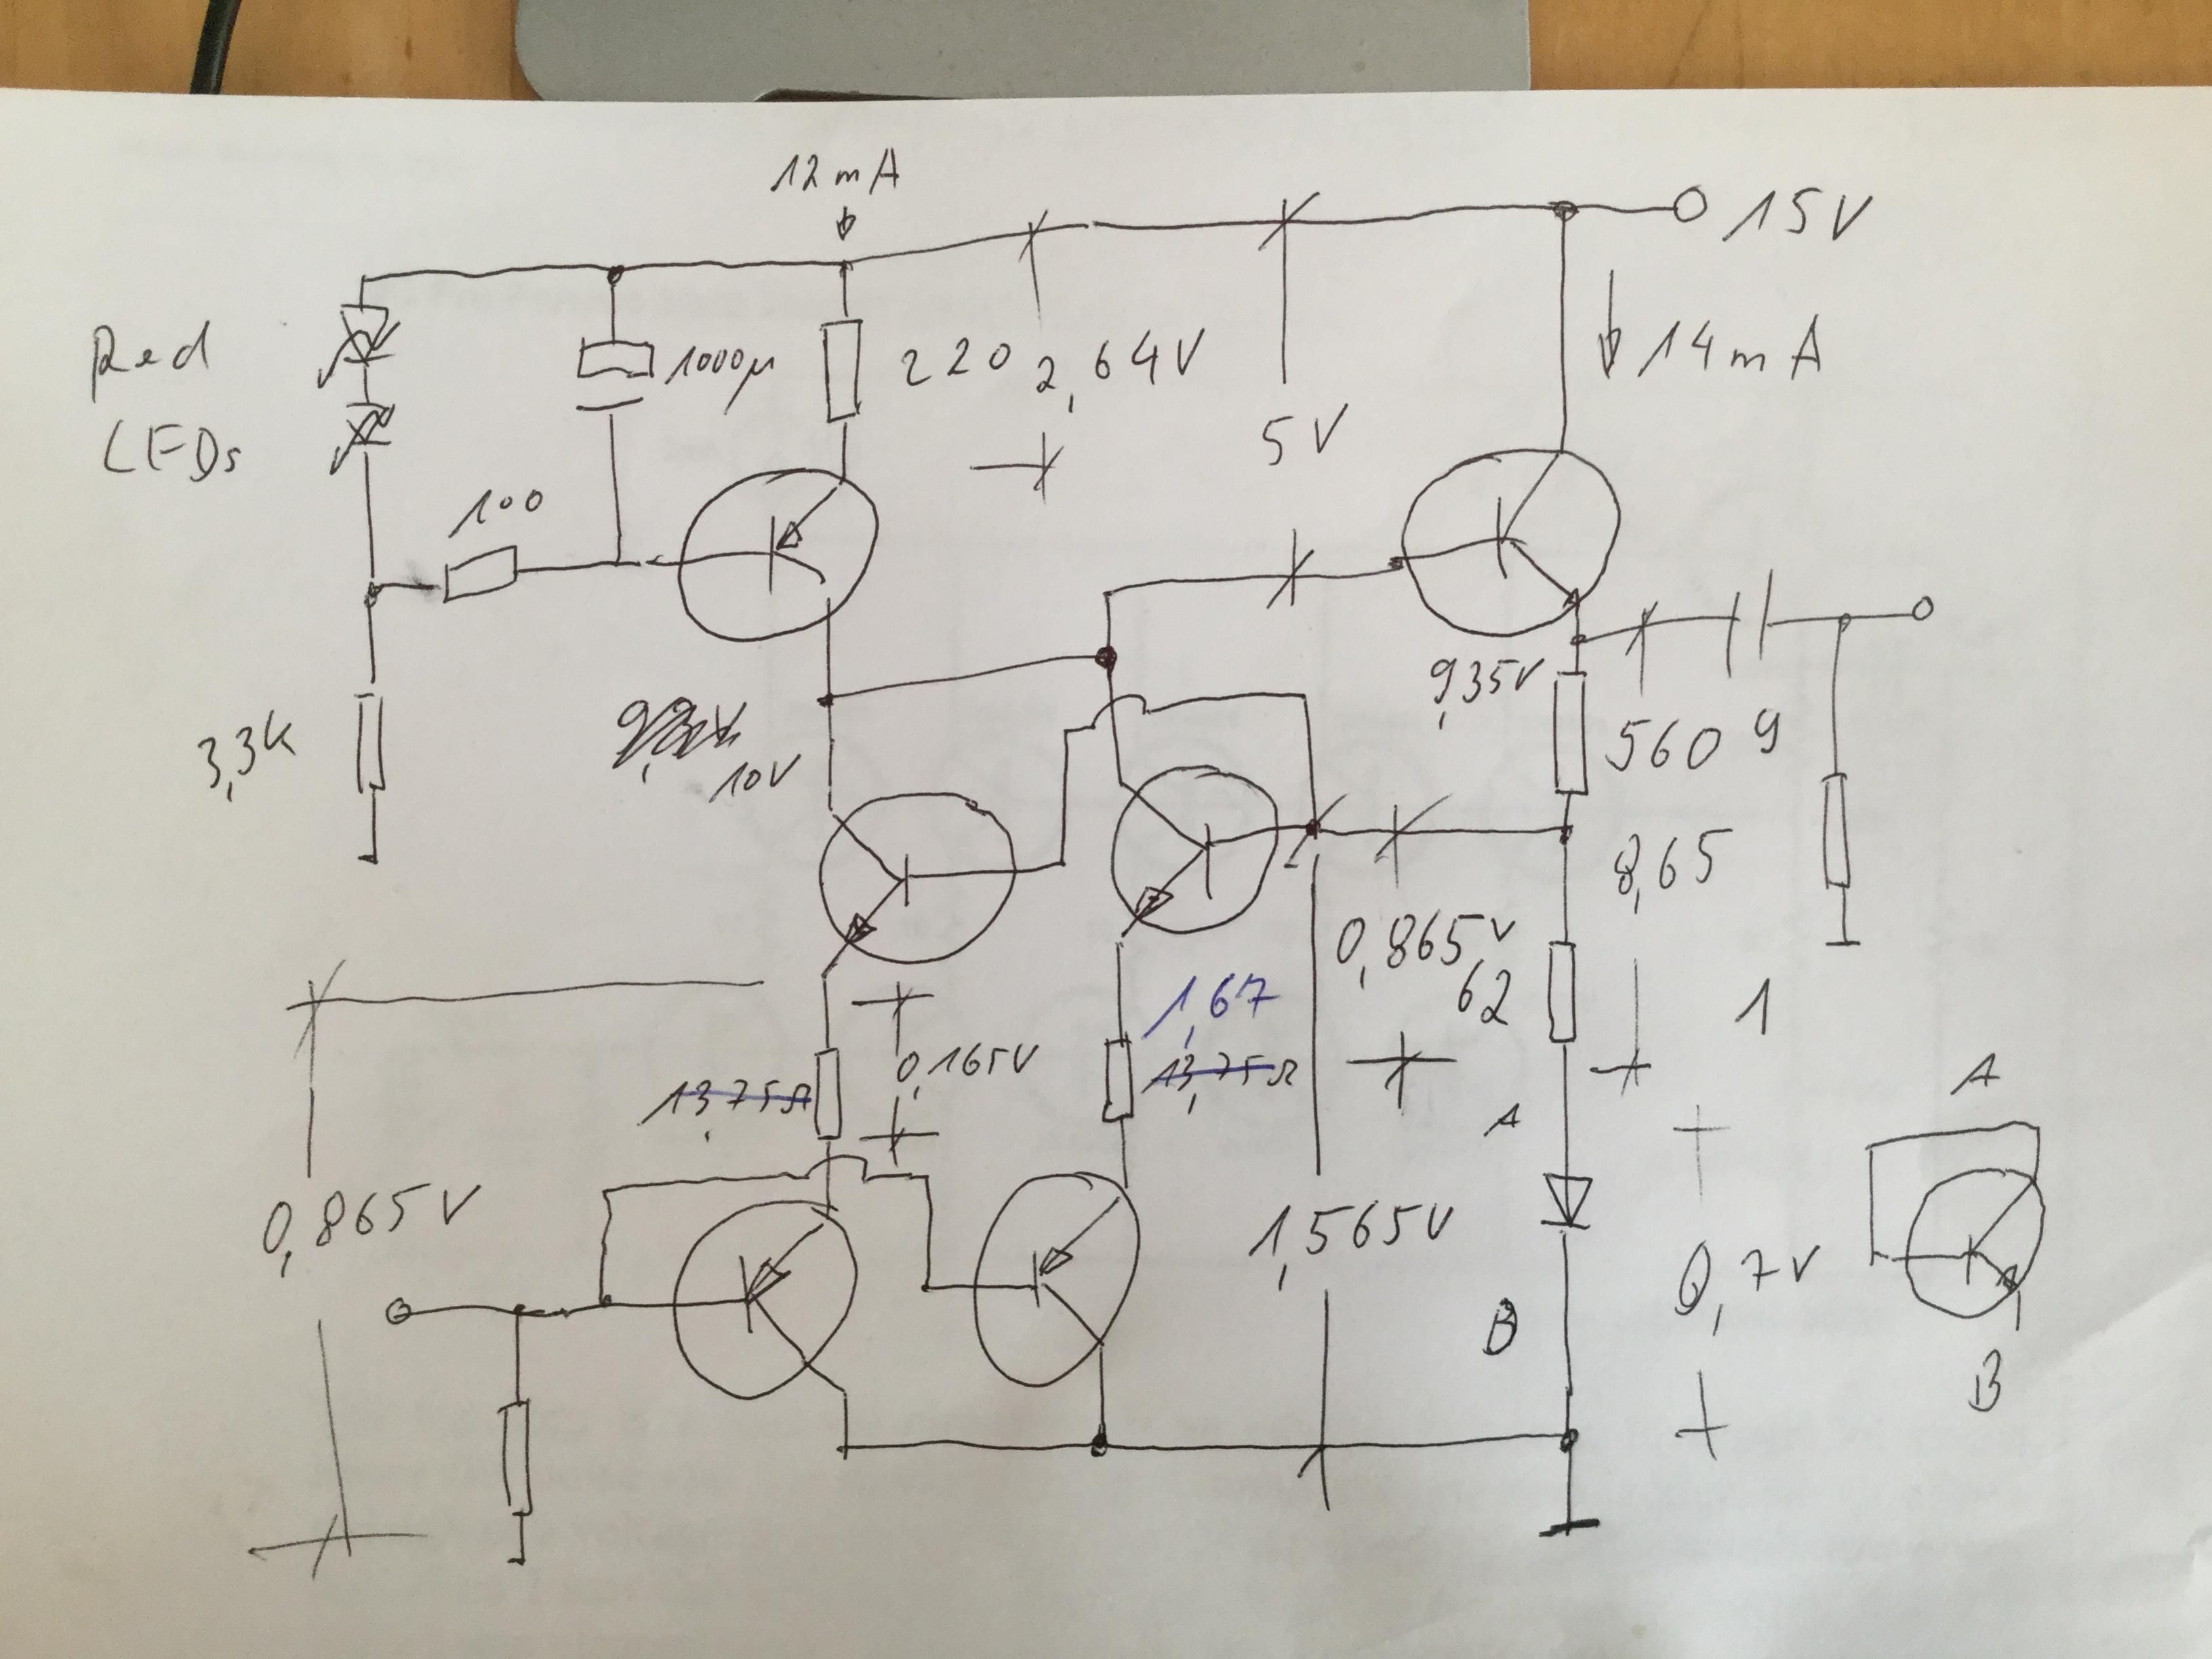 12mA
15V
Red
LEDs
1000µ
220
2,64V
14mA
5V
100
3,3k
10V
9,35V
560
9
8,65
0,865V
62
1
1,67
13,75Ω
0,165V
13,75Ω
A
A
0,865V
1,565V
0,7V
B
B